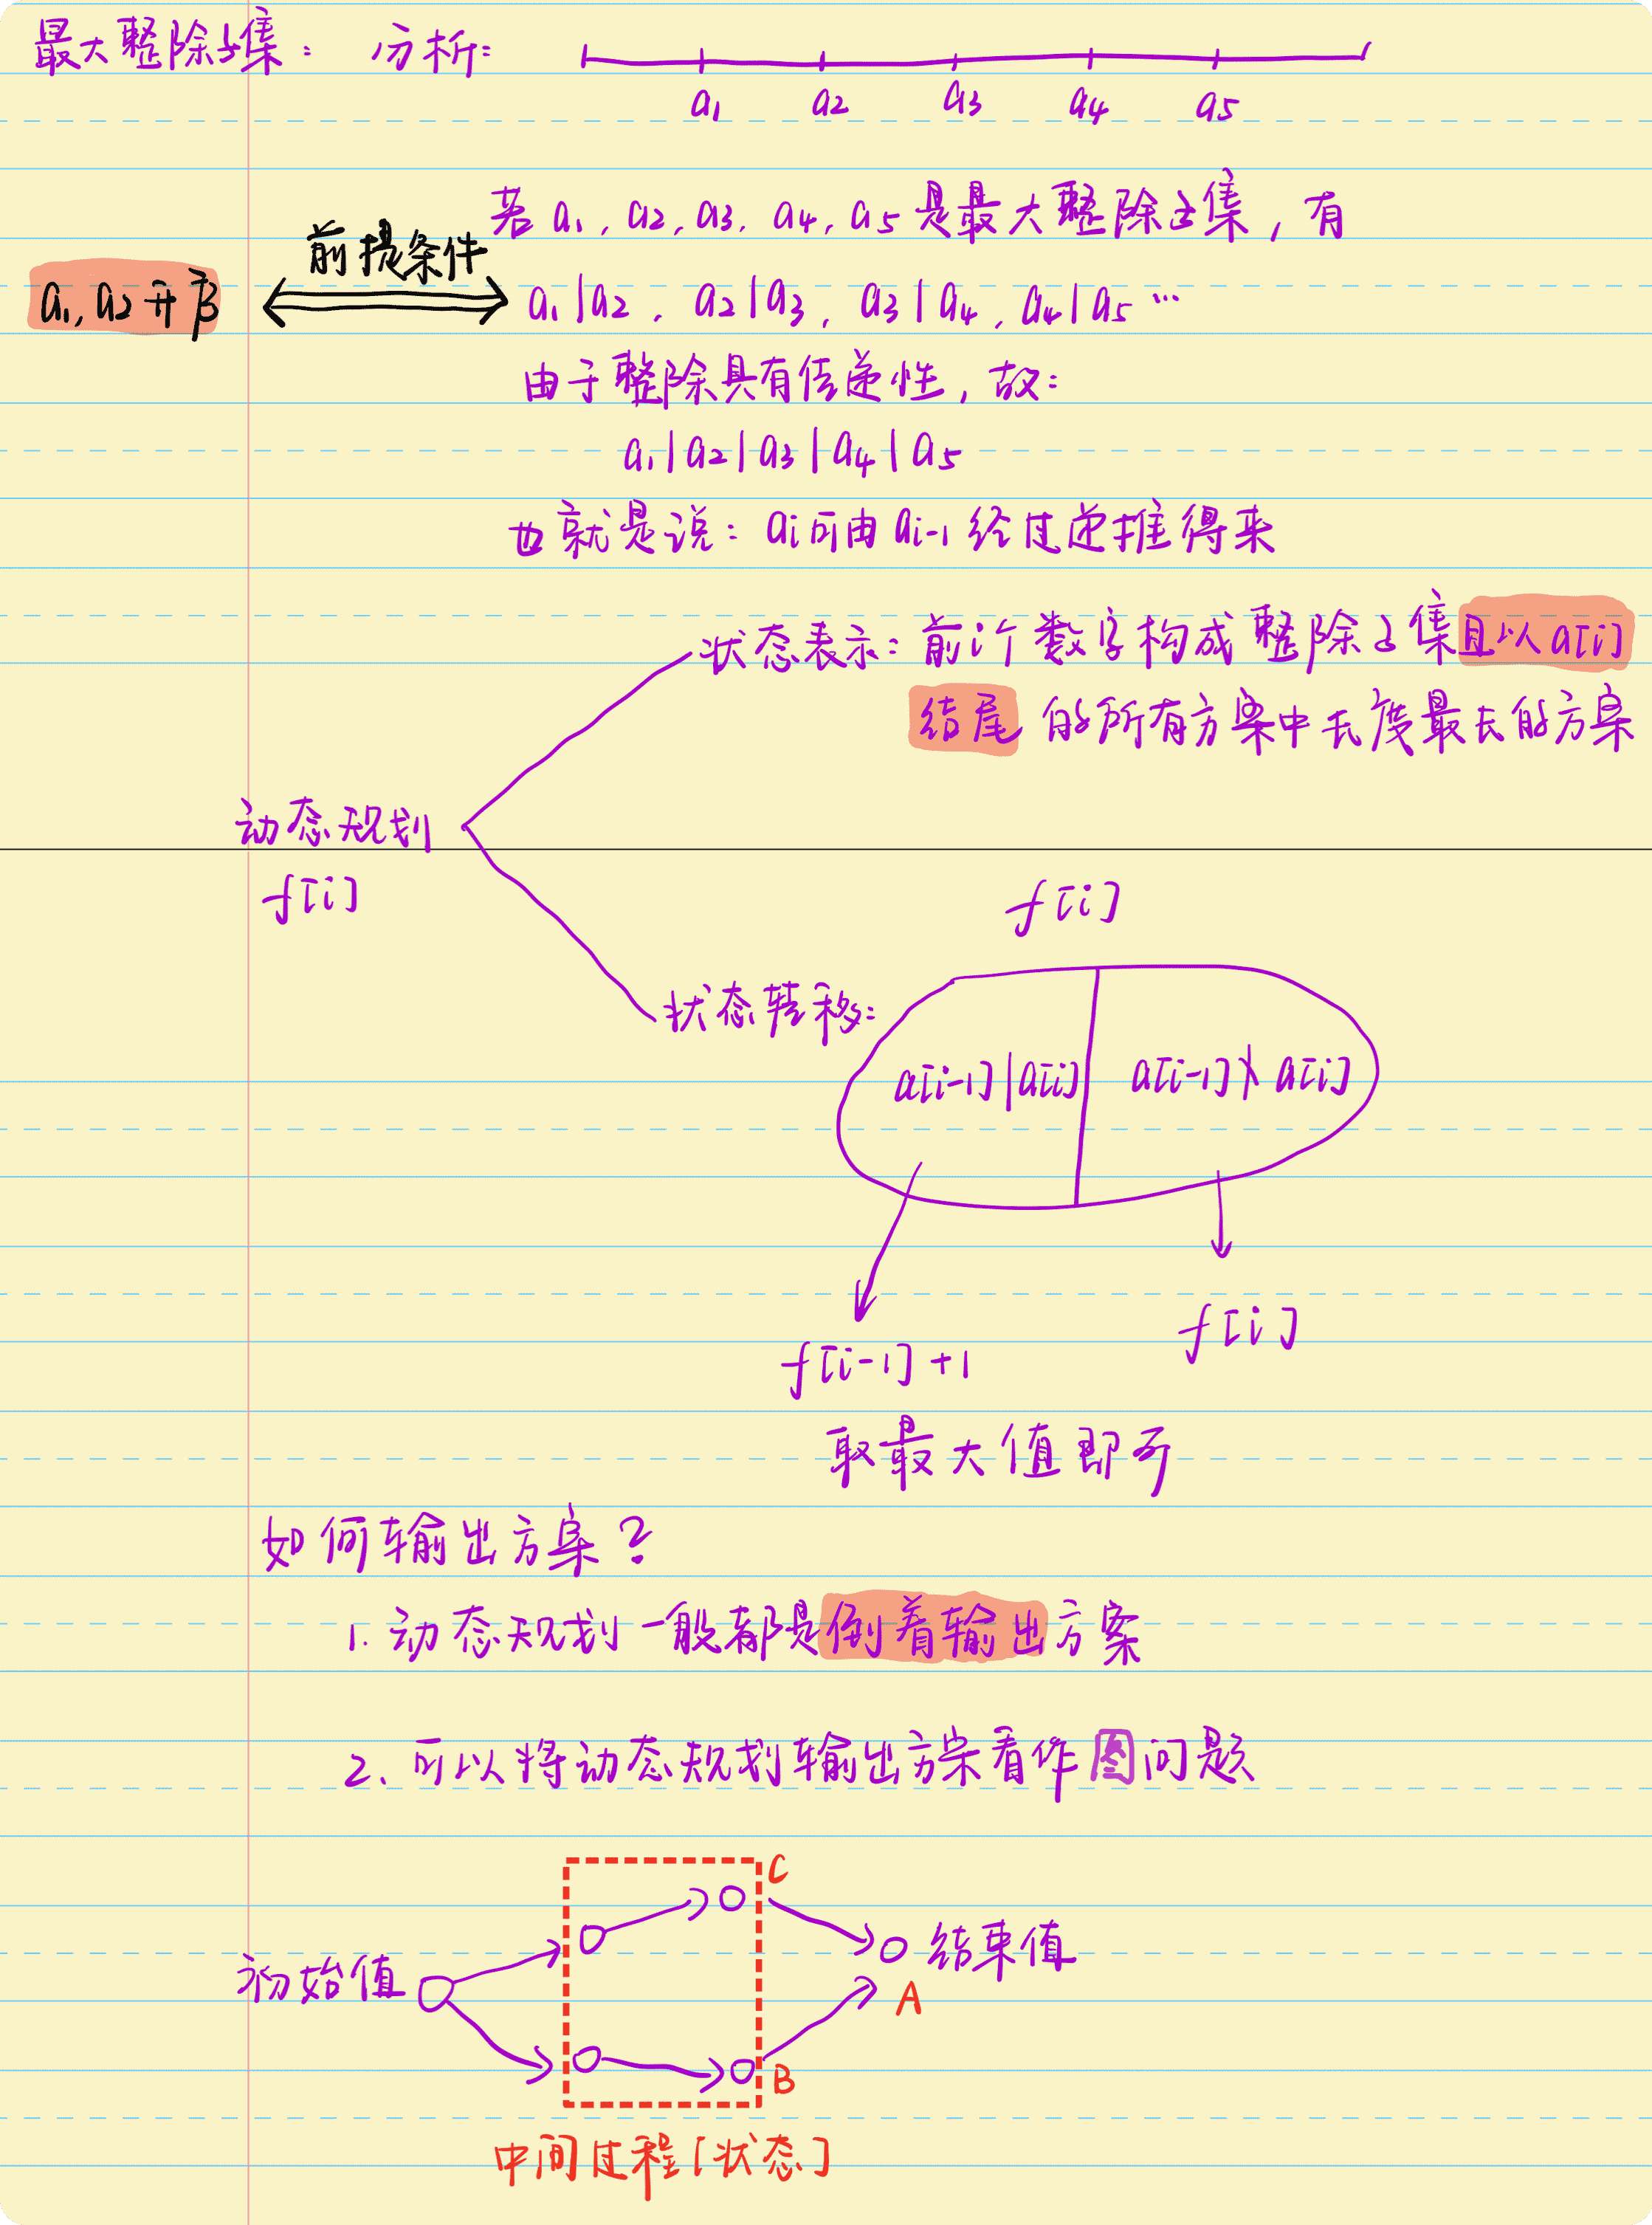 最大整除子集： 分析：
a1 a2 a3 a4 a5
若 a1, a2, a3, a4, a5 是最大整除子集, 有
前提条件
a1, a2 升序
a1|a2, a2|a3, a3|a4, a4|a5 …
由于整除具有传递性, 故：
a1|a2|a3|a4|a5
也就是说：ai可由ai-1经过递推得来
状态表示：前i个数字构成整除子集且以a[i]
结尾 的所有方案中长度最长的方案
动态规划
f[i]
f[i]
状态转移：
a[i-1]|a[i] a[i-1]∤a[i]
f[i-1]+1
f[i]
取最大值即可
如何输出方案？
1. 动态规划一般都是倒着输出方案
2. 可以将动态规划输出方案看作图问题
C
初始值
结束值
A
B
中间过程[状态]